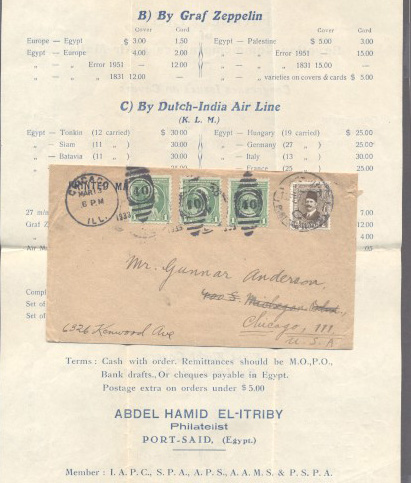 B) By Graf Zeppelin
Cover Card Cover Card
Europe — Egypt $ 3.00 1.50 Egypt — Palestine $ 5.00 3.00
Egypt — Europe 4.00 2.00 „ — „ Error 1951 — 15.00
„ — „ Error 1951 — 12.00 „ — „ 1831 15.00 —
„ — „ „ 1831 12.00 — „ — „ varieties on covers & cards $ 5.00
C) By Dutch-India Air Line
(K. L. M.)
Egypt — Tonkin (12 carried) $ 30.00 Egypt — Hungary (19 carried) $ 25.00
„ — Siam (11 „ ) 30.00 „ — Germany (27 „ ) 25.00
„ — Batavia (11 „ ) 30.00 „ — Italy (13 „ ) 25.00
„ — France (25 „ )
PRINTED MA
CHICAGO
MAR 15
6 PM
1933
ILL.
40 40 40
27 m 7.00
Graf Z 12.00
4.00
Air M .05
Mr. Gunnar Anderson,
400 S. Michigan Blvd.,
Chicago, Ill
U. S. A
6326 Kenwood Ave
Compl
Set of
Set of
Terms : Cash with order. Remittances should be M.O., P.O.,
Bank drafts., Or cheques payable in Egypt.
Postage extra on orders under $ 5.00
ABDEL HAMID EL-ITRIBY
Philatelist
PORT-SAID, (Egypt.)
Member : I. A. P. C., S. P. A., A. P. S., A. A. M. S. & P. S. P. A.